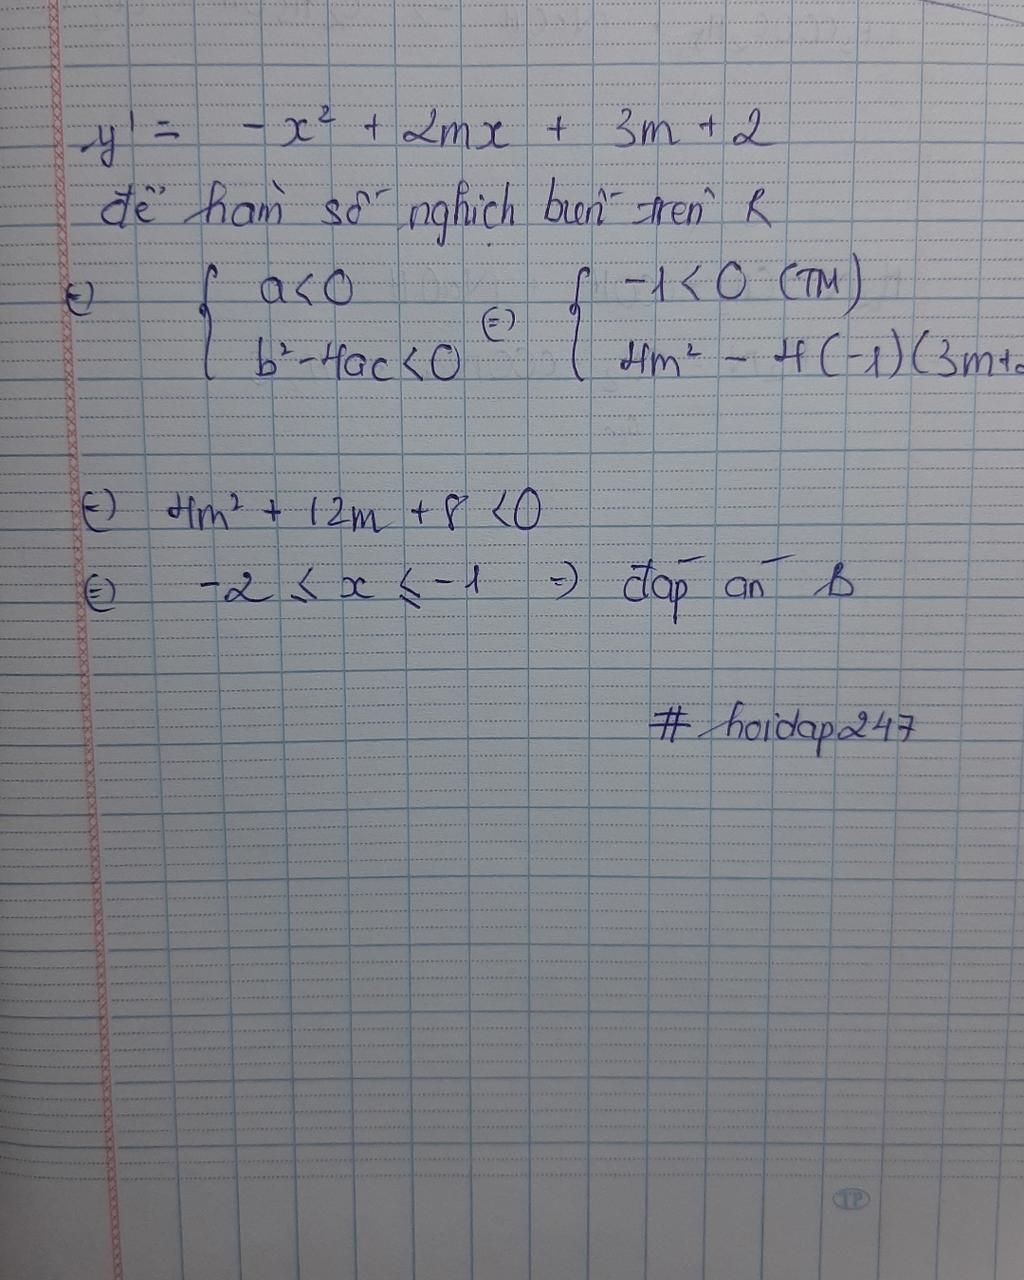 y' = -x² + 2mx + 3m + 2
để hàm số nghịch biến trên R
⇔ { a<0 ⇔ { -1<0 (TM)
b²-4ac<0 4m² - 4(-1)(3m+2
⇔ 4m² + 12m + 8 <0
⇔ -2 ≤ x ≤ -1 ⇒ đáp án B
# hoidap247